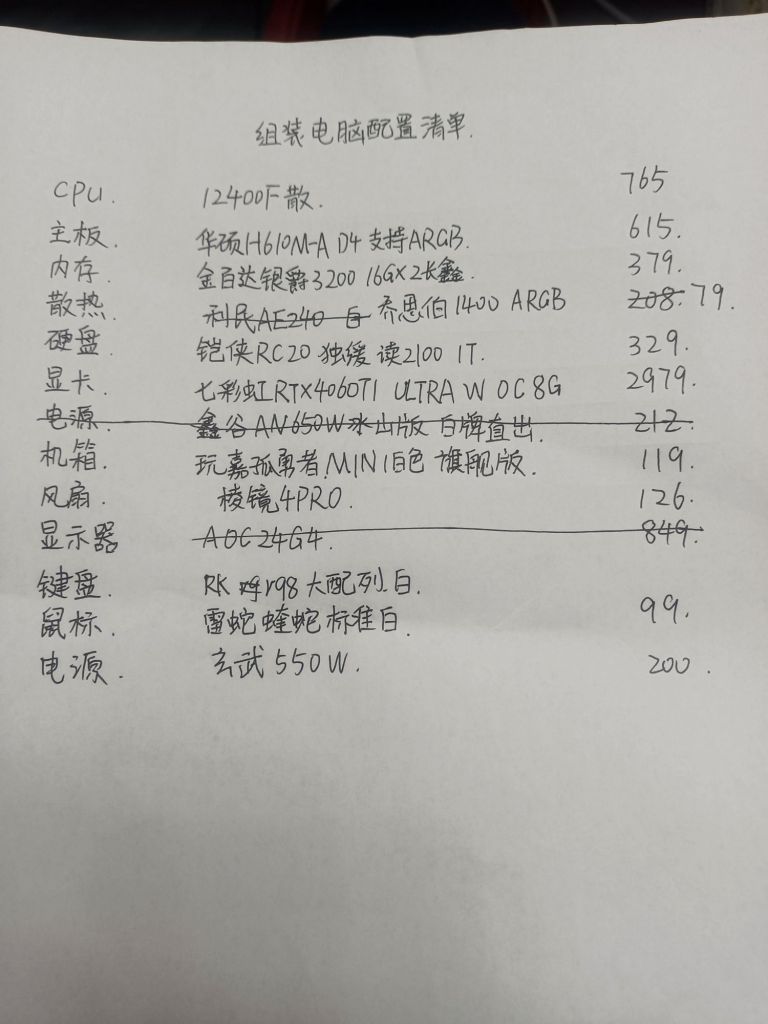 组装电脑配置清单.
CPU. 12400F散. 765
主板. 华硕H610M-A D4 支持ARGB. 615.
内存. 金百达银爵3200 16G×2长鑫. 379.
散热. 利民AE240 白 乔思伯1400 ARGB 208. 79.
硬盘. 铠侠RC20 独缓 读2100 1T. 329.
显卡. 七彩虹RTX4060TI ULTRA W OC 8G 2979.
电源. 鑫谷AN650W冰山版 白牌直出. 212.
机箱. 玩嘉孤勇者.MINI白色 旗舰版. 119.
风扇. 棱镜4PRO. 126.
显示器 AOC24G4. 849.
键盘. RK r98 大配列.白.
鼠标. 雷蛇蝰蛇标准白. 99.
电源. 玄武550W. 200.